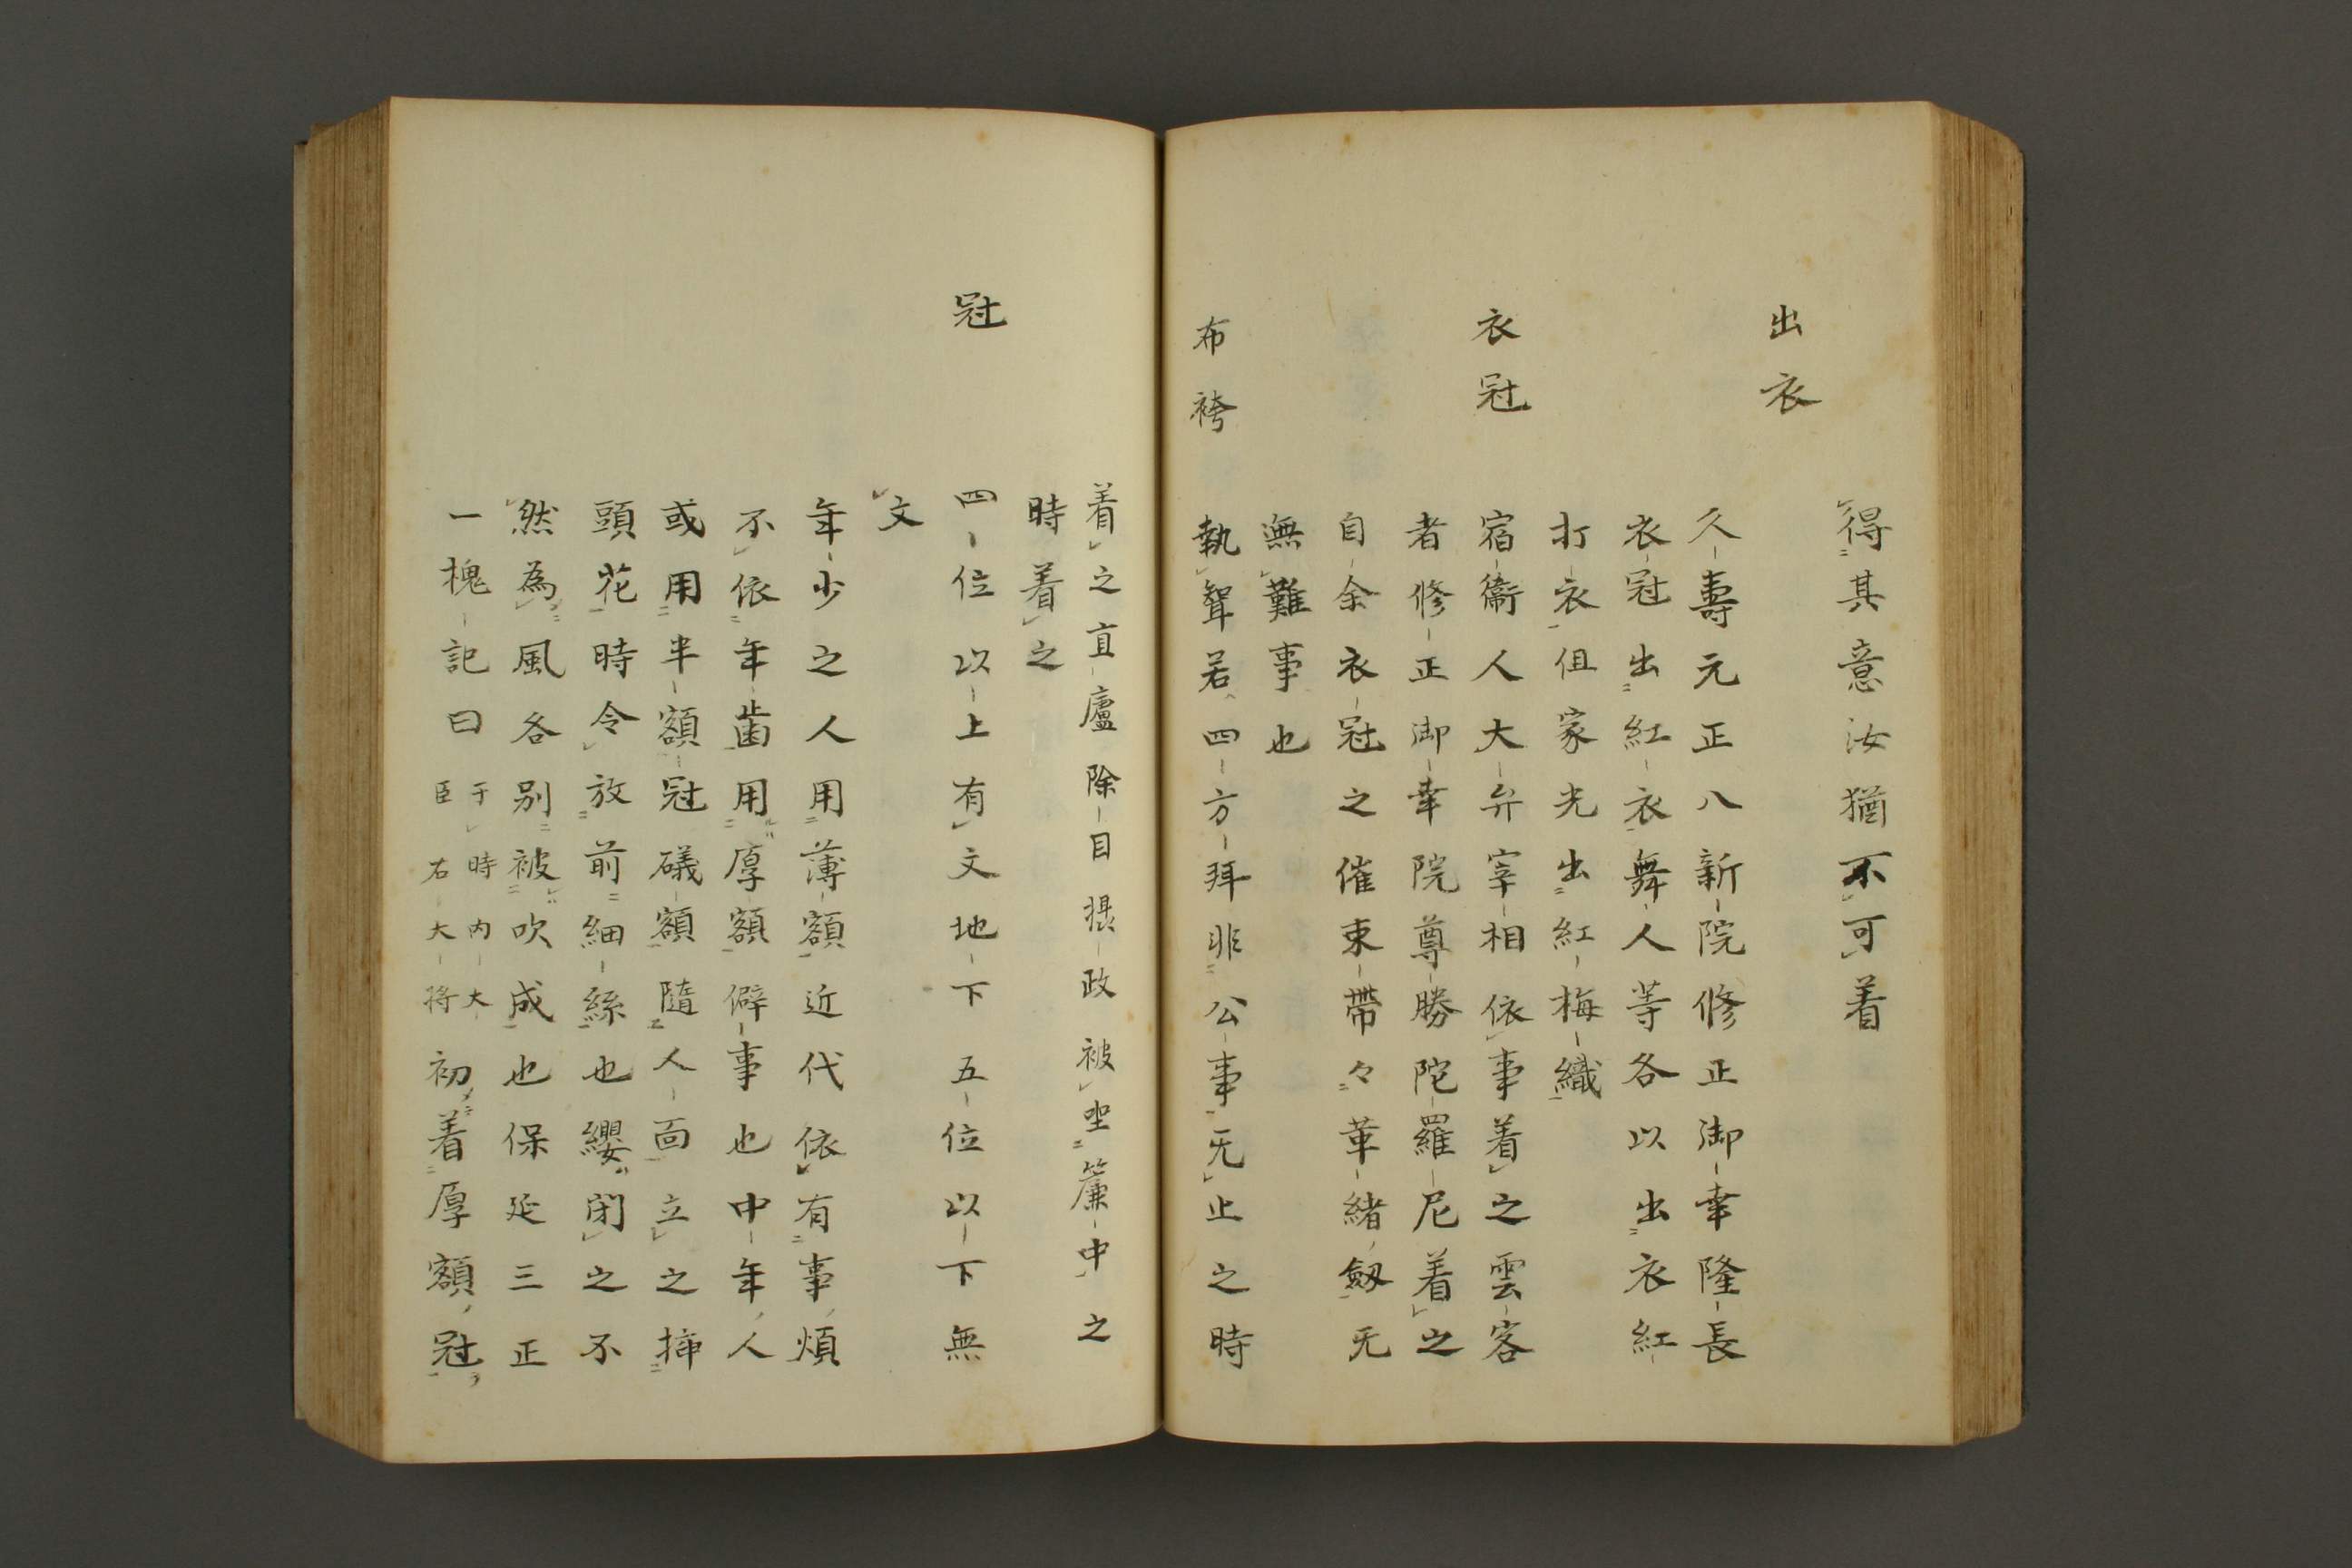 得其意汝猶不可着
出衣
久壽元正八新院修正御幸隆長
衣冠出紅衣舞人等各以出衣紅
打衣但家光出紅梅織
衣冠
宿衞人大弁宰相依事着之雲客
者修正御幸院尊勝陀羅尼着之
自余衣冠之催束帶々革緒劔无
無難事也
布袴
執聟若四方拜非公事无止之時
着之直廬除目摂政被坐簾中之
時着之
冠
四位以上有文地下五位以下無
文
年少之人用薄額近代依有事煩
不依年齒用厚額僻事也中年人
或用半額冠礒額隨人面立之揷
頭花時令放前細絲也纓閇之不
然為風各別被吹成也保延三正
一槐記曰于時内大臣右大将初着厚額冠